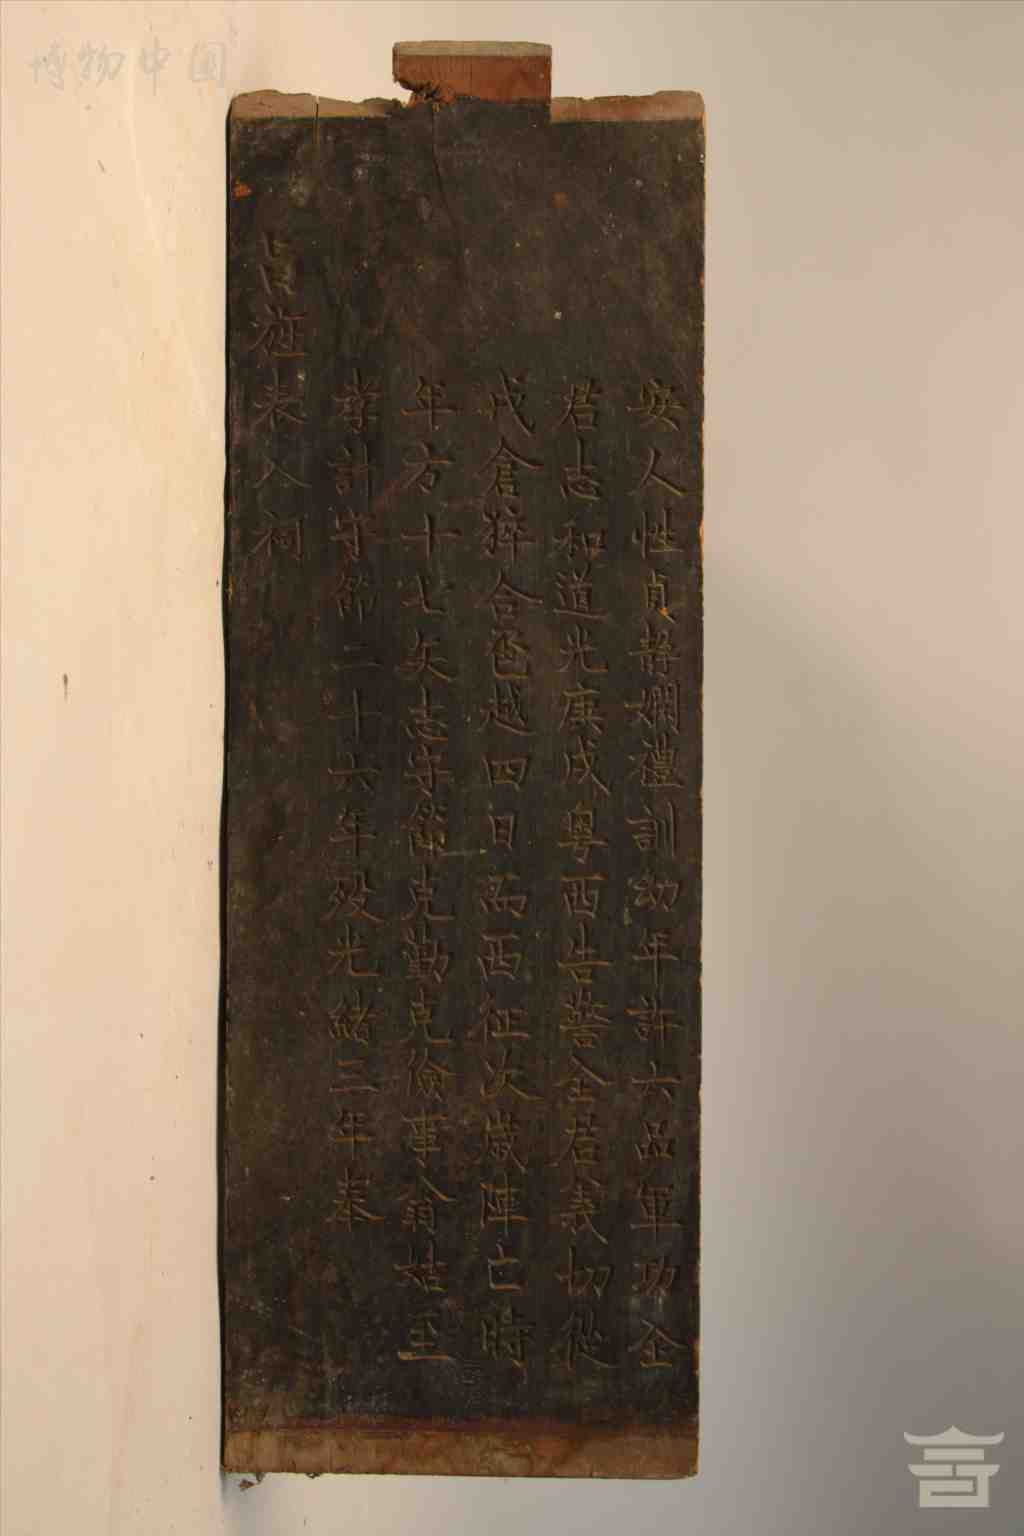 博物中國
安人性貞静嫻禮訓幼年許六品軍功全
君志和道光庚戌粤西告警全君義切從
戎倉猝合卺越四日而西征次歲陣亡時
年方十七矢志守節克勤克儉事翁姑至
孝計守節二十六年歿光緒三年奉
旨旌表入祠